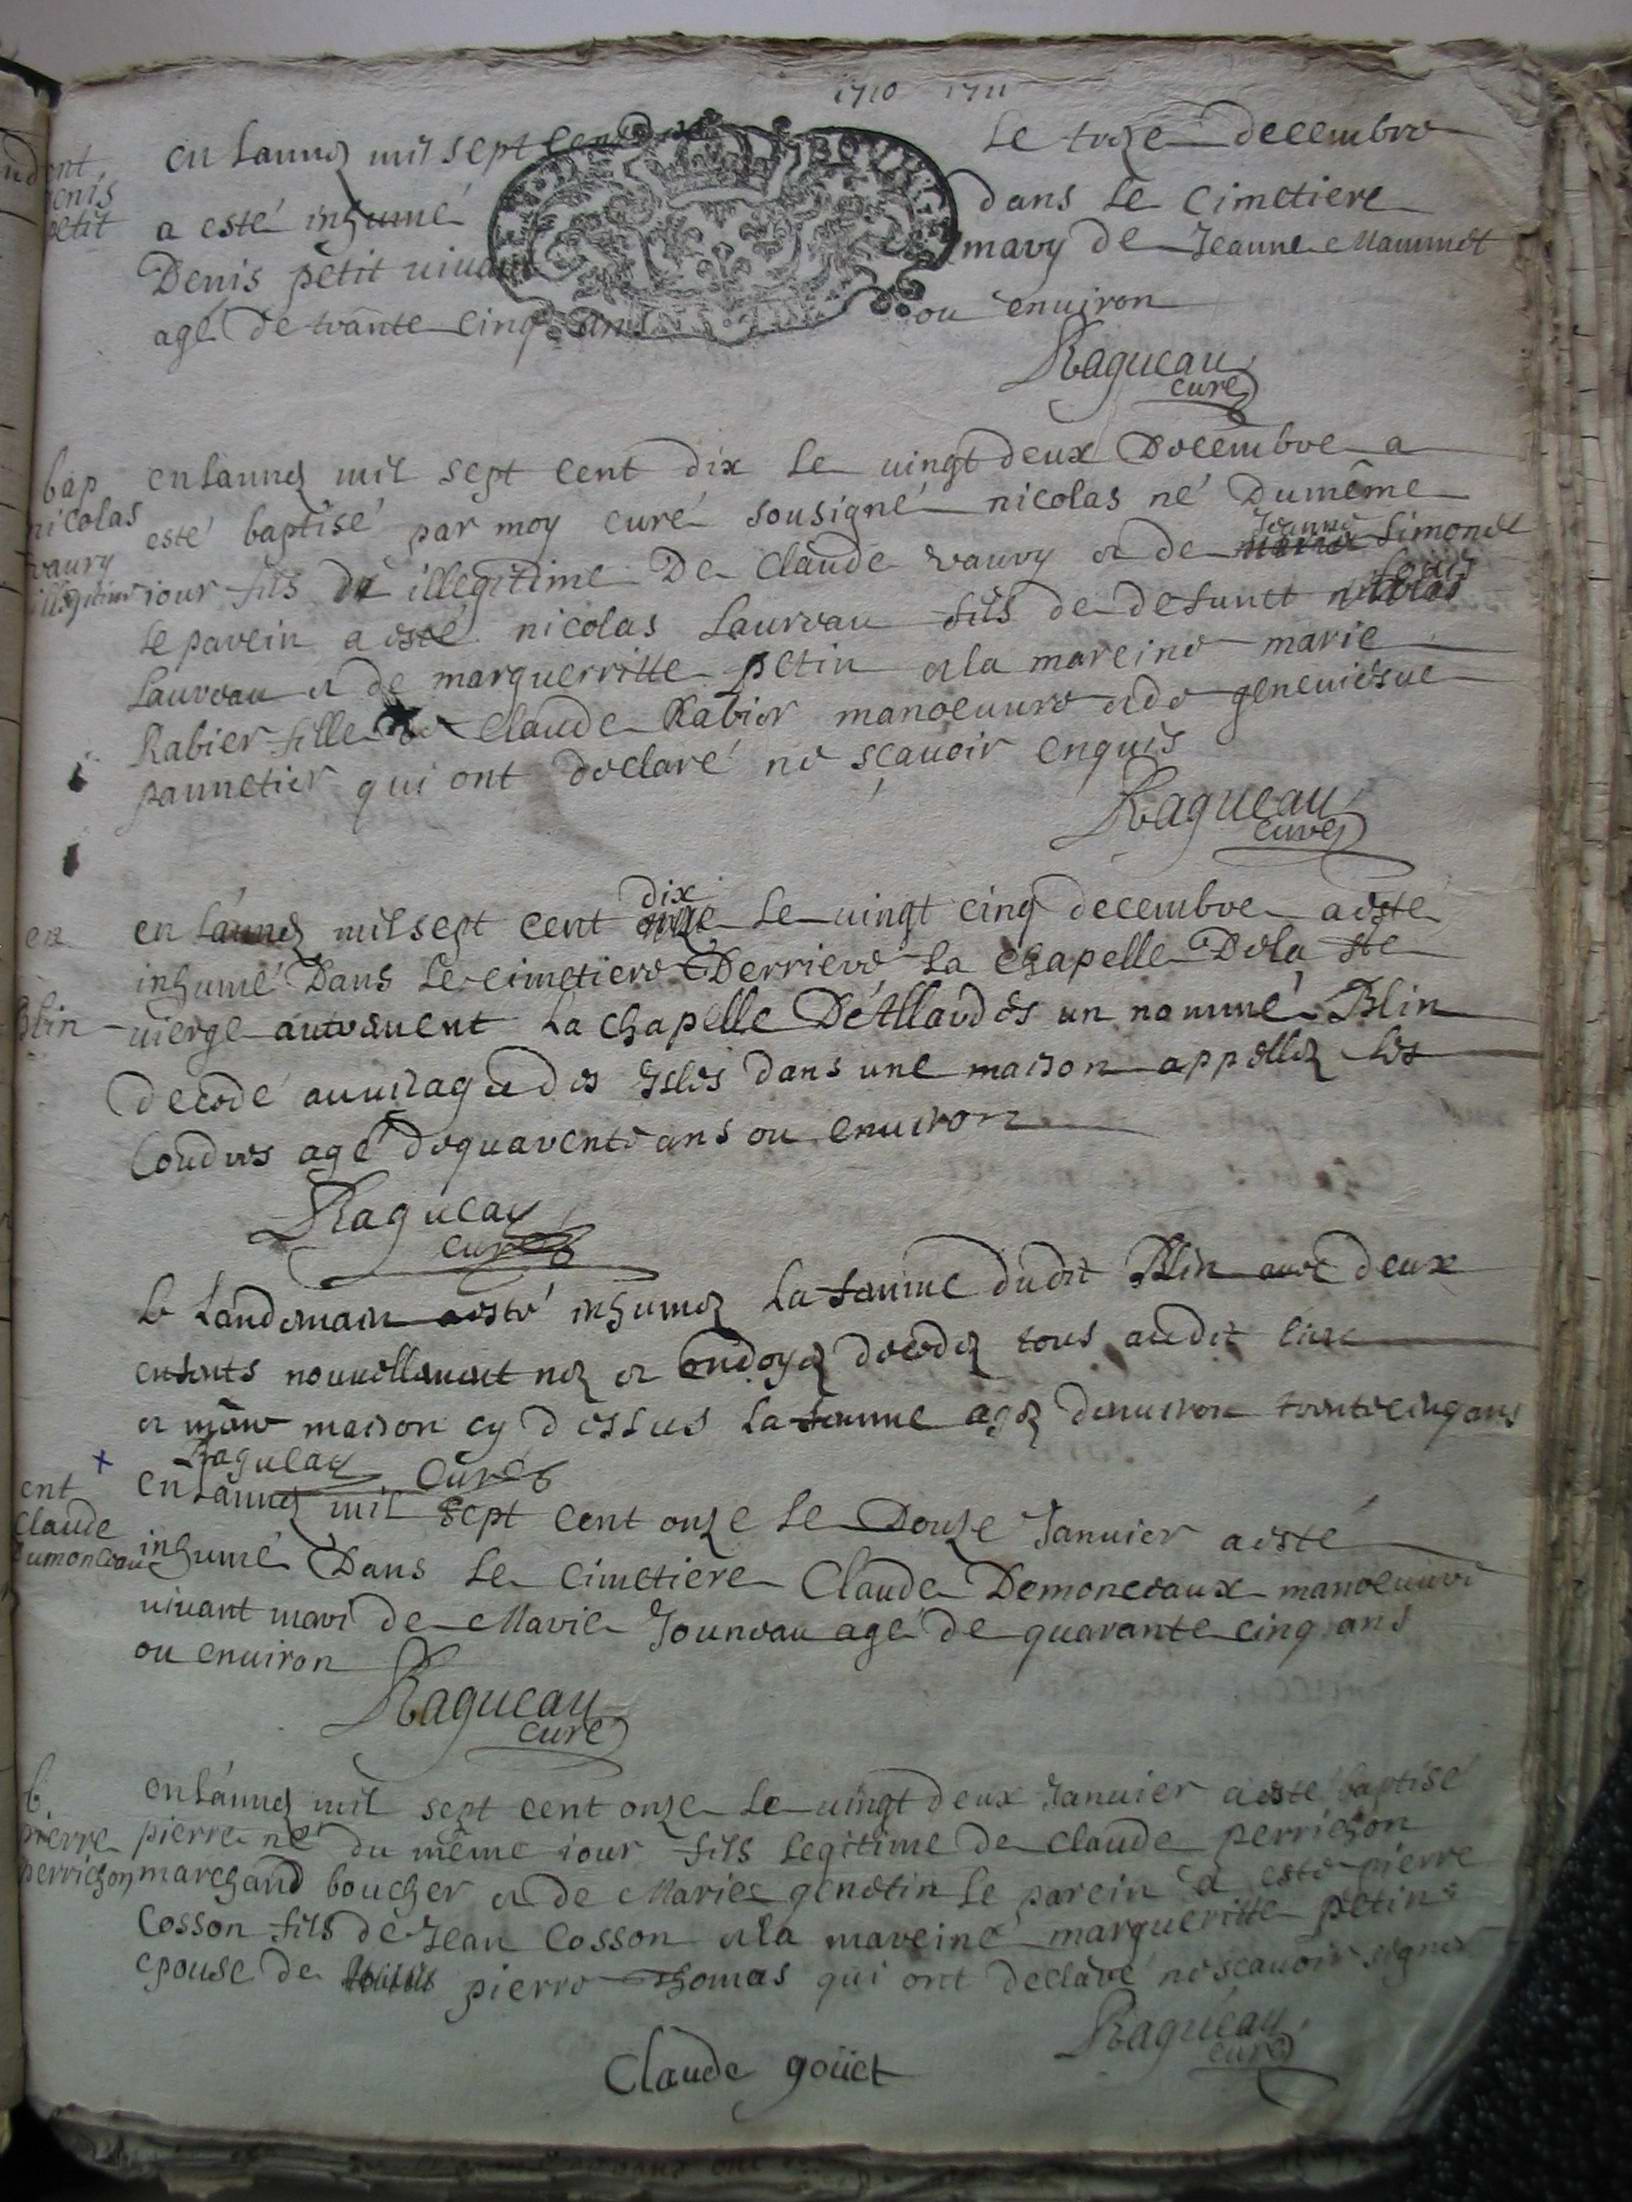 1710 1711
en lannee mil sept cent le treze decembre
ent
denis
petit
a esté inhumé dans le cimetiere
Denis petit vivant mary de Jeanne Mammet
agé de trante cinq ans ou environ
Ragueau
curé
bap
nicolas
vaury
illegitime
en lannee mil sept cent dix le vingt deux Decembre a
esté baptisé par moy curé sousigné nicolas né du même
iour fils illegitime De Claude vaury et de Jeanne Simonet
le parein a esté nicolas Laureau fils de defunct louis
Laureau et de marguerritte petin et la mareine marie
Rabier fille de Claude Rabier manoeuvre et de geneviesve
pannetier qui ont declaré ne sçavoir enquis
Ragueau
curé
en
Blin
dix
en lannee mil sept cent le vingt cinq decembre a esté
inhumé Dans le cimetiere Derriere la chapelle De la ste
vierge autrement la chapelle D'Allardes un nommé Blin
decedé au village des Isles dans une maison appellee les
Coudres agé de quarente ans ou environ
Ragueau
curé
le landemain a esté inhumee la femme dudit Blin avec deux
enfents nouvellement nez et ondoyez decedez tous audit lieu
et même maison cy dessus la femme agee denviron trente cinq ans
Ragueau curé
ent
Claude
dumonceau
en lannee mil sept cent onze le Douze Janvier a esté
inhumé Dans le cimetiere Claude Demonceaux manoeuvre
vivant mari de Marie Jouneau agé de quarante cinq ans
ou environ
Ragueau
curé
b.
pierre
perrichon
en lannee mil sept cent onze le vingt deux Janvier a esté baptisé
pierre né du même iour fils legitime de claude perrichon
marchand boucher et de Marie genetin le parein a esté pierre
Cosson fils de Jean Cosson et la mareine margueritte petin
epouse de pierre Thomas qui ont declaré ne scavoir signer
Ragueau
curé
Claude goüet